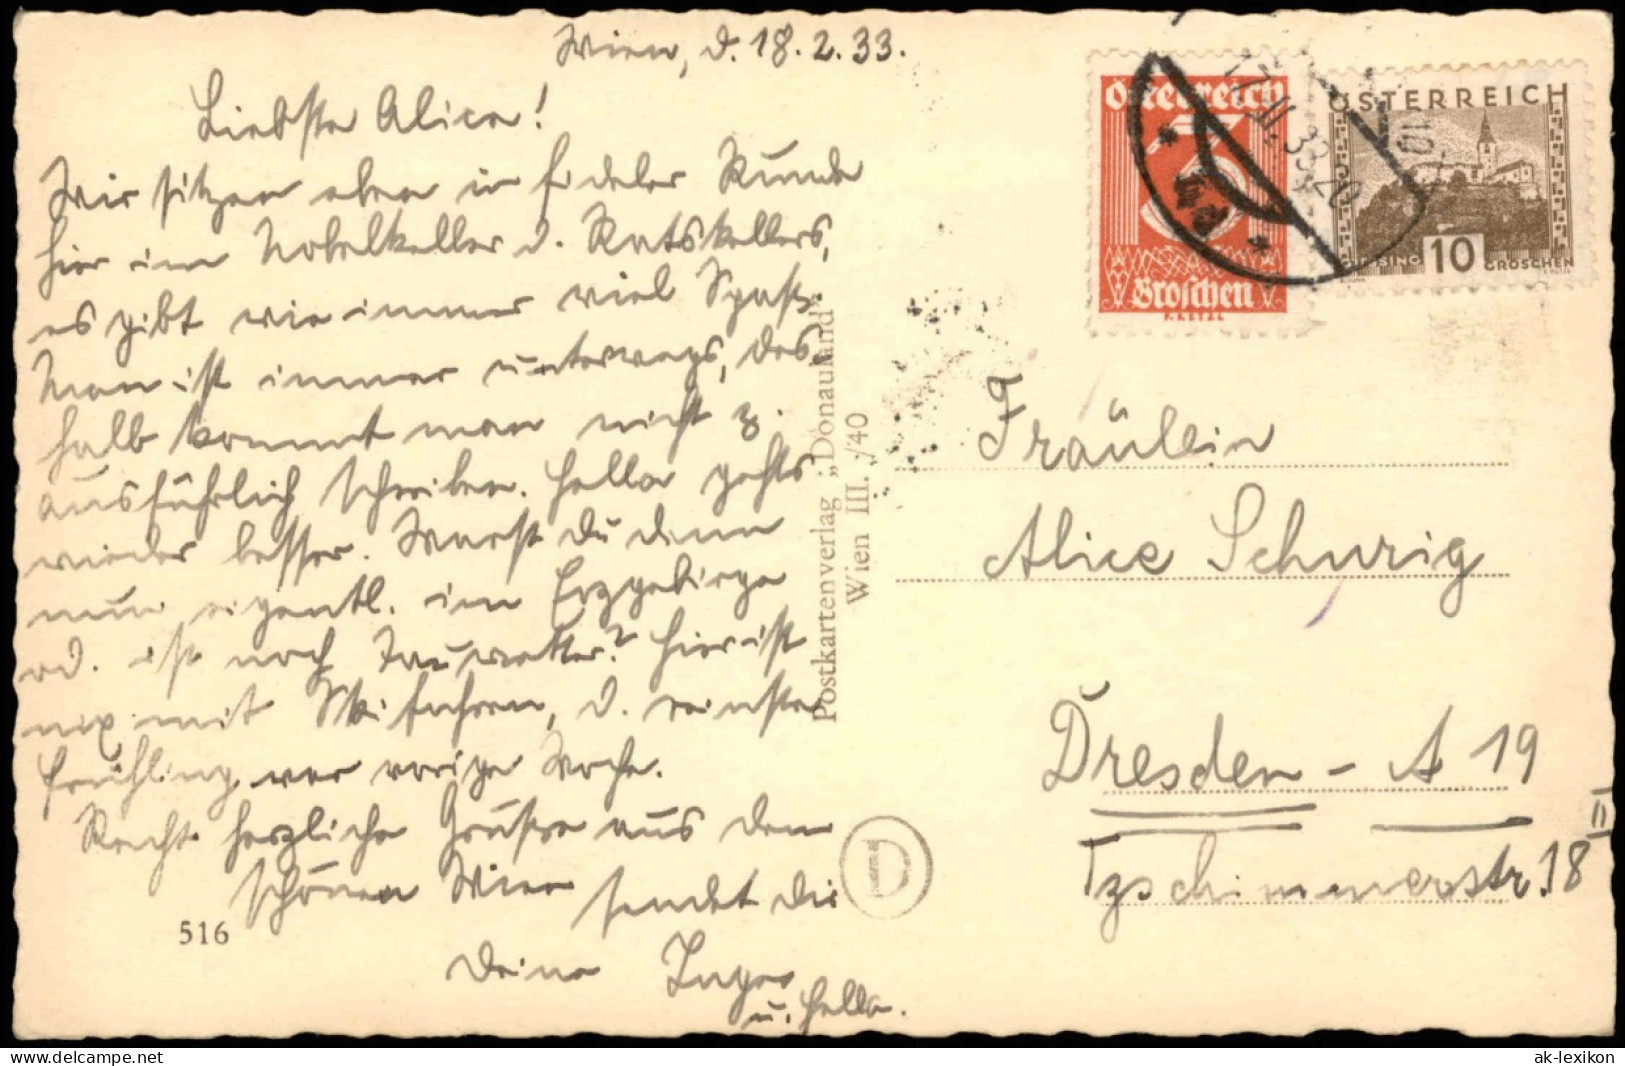 Wien, d. 18.2.33.
Liebste Alice!
Wir sitzen eben in fideler Runde
hier im Nobelkeller d. Ratskellers,
es gibt wie immer viel Spaß.
Man ist immer unterwegs, des-
halb kommt man nicht z.
ausführlich schreiben. Hella gehts
wieder besser. Warst Du denn
nun eigentl. im Erzgebirge
od. ist noch Tauwetter? Hier ist
nix mit Skifahren, d. reinste
Frühling war vorige Woche.
Recht herzliche Grüße aus dem
schönen Wien sendet Dir
Deine Inge
u. Hella.
516
Postkartenverlag „Donauland"
Wien III. ./40
D
Österreich
Groschen
17.II.33.20
10
ÖSTERREICH
GÜSSING 10 GROSCHEN
Fräulein
Alice Schurig
Dresden - A 19
Tzschimmerstr. 18 II
ak-lexikon
delcampe.net